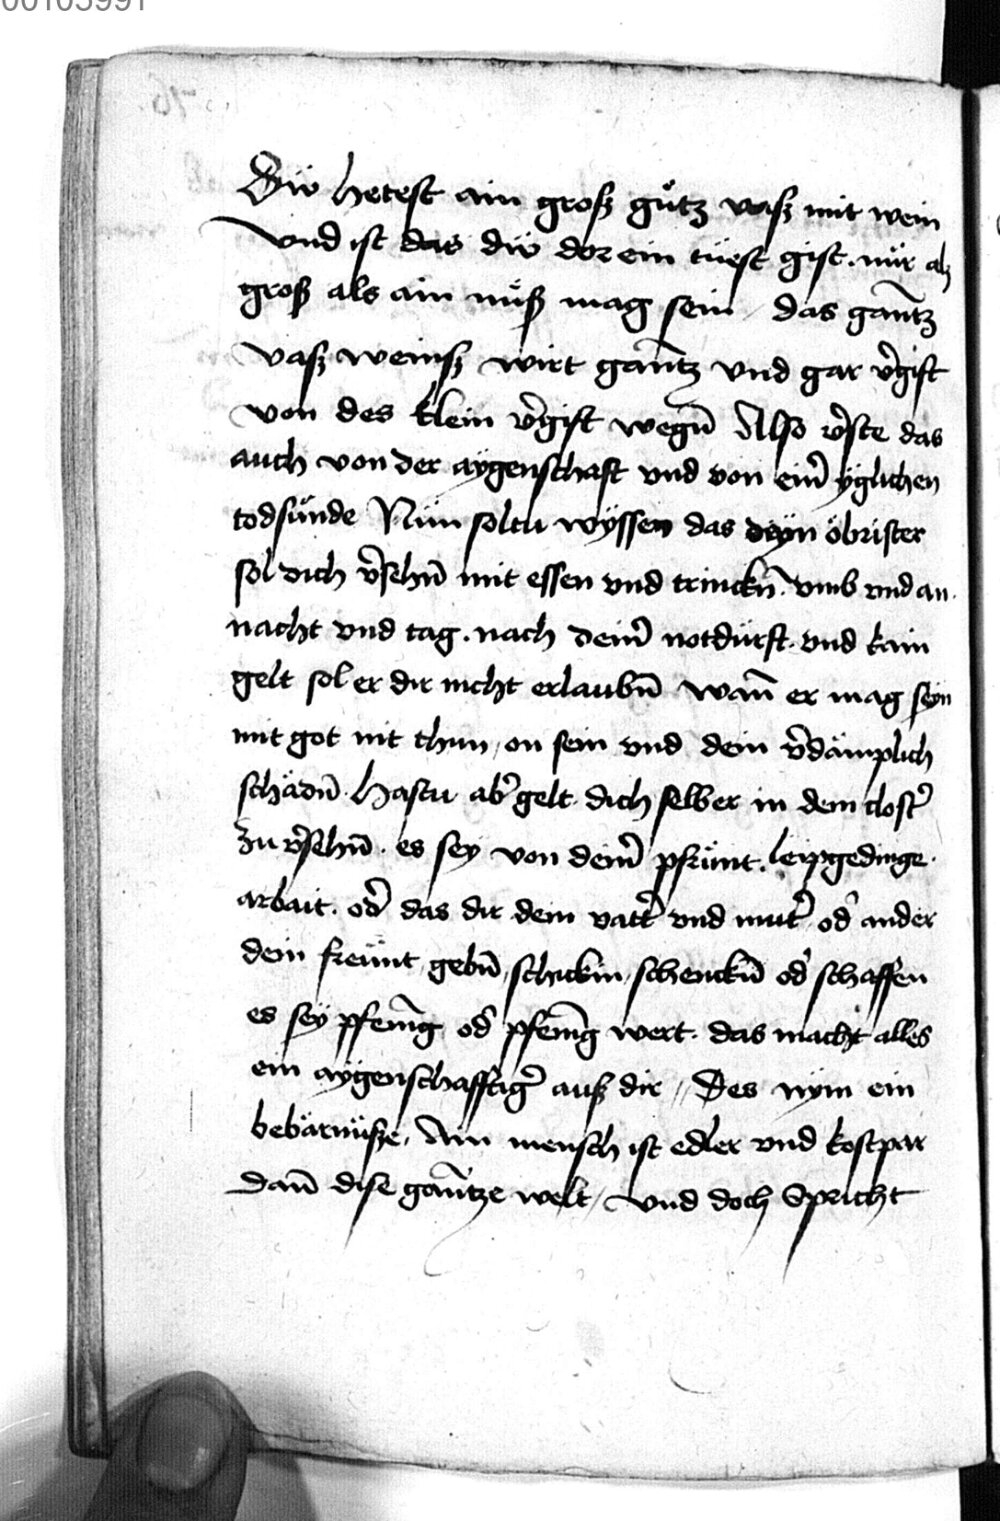 00103991
Dw hetest ain groß gůtz vasz mit wein
vnd ist das dw dor ein tüest gift. nür alz
groß als ain nůß mag sein / das gantz̄
vasz weinsz wirt gantz̄ vnd gar v̄gift
von des klein v̄gift wegn̄ Also v̄ste das
auch von der aÿgenschaft vnd von ein̄ ÿglichen
todsünde Nün soltu wÿssen das deÿn öbrister
sol dich v̄sehn̄ mit essen vnd trinckn̄. vmb vnd an.
nacht vnd tag. nach dein̄ notdürft. vnd kain
gelt sol er dir nicht erlaubn̄ wan̄ er mag seÿn
mit got nit thun, on sein vnd dein v̄dämplich
schädn̄. Hastu ab̄ gelt. dich selber in dem clost̄
zu v̄sehn̄. es sey von dein̄ pfrünt. leipgedinge.
arbait. od̄ das dir dein vatt̄ vnd mut̄ od̄ ander
dein freünt gebn̄, schickin, schenckn̄ od̄ schaffen
es seÿ pfenīg od̄ pfenīg wert. das macht alles
ein aÿgenschafftiḡ ausz dir // Des nÿm ein
bebärnüsze, Ain mensch ist edler vnd kostpar
dan̄ dise gantz̄e welt / vnd doch Spricht